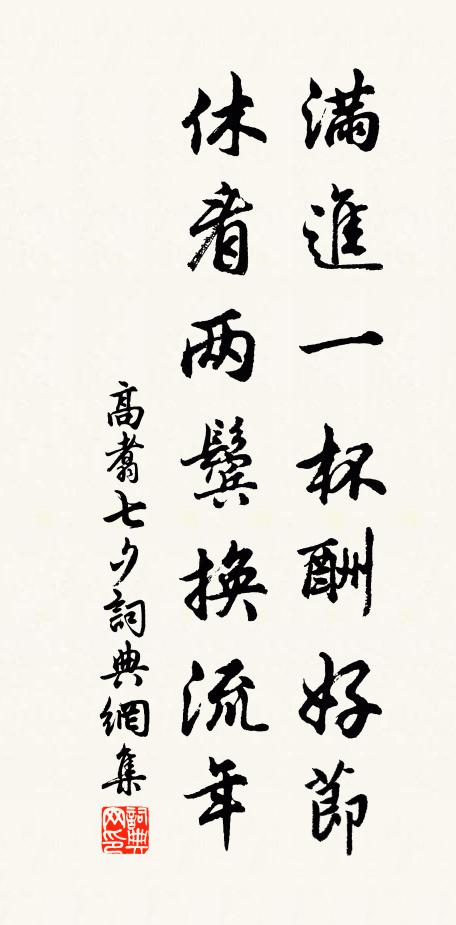 滿進一杯酬好節
休看两鬢換流年
高翥七夕詞典網集
詞典网印